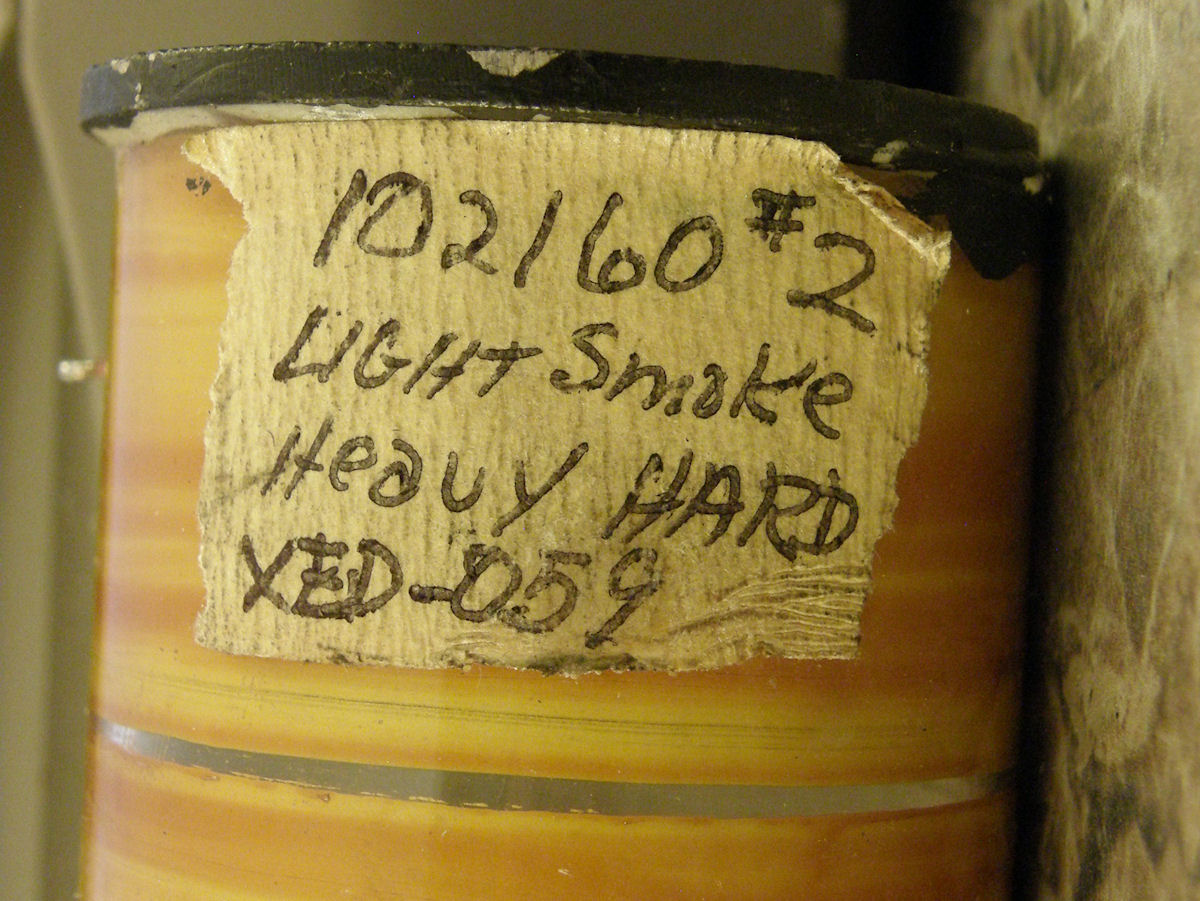 102160 #2
LIGHT Smoke
Heavy HARD
XED-059